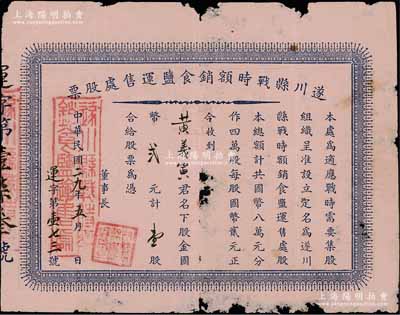 上海陽明拍賣
遂川縣戰時額銷食鹽運售處股票
本處為適應戰時需要集股
組織呈准設立定名為遂川
縣戰時額銷食鹽運售處股
本總額計共國幣八萬元分
作四萬股每股國幣貳元正
今收到
黃義寅君名下股金國
幣貳元計壹股
合給股票為憑
董事長
中華民國二九年五月 日
運字第壹七三號
運字第壹柒叁號
上海陽明拍賣
www.ymauction.com